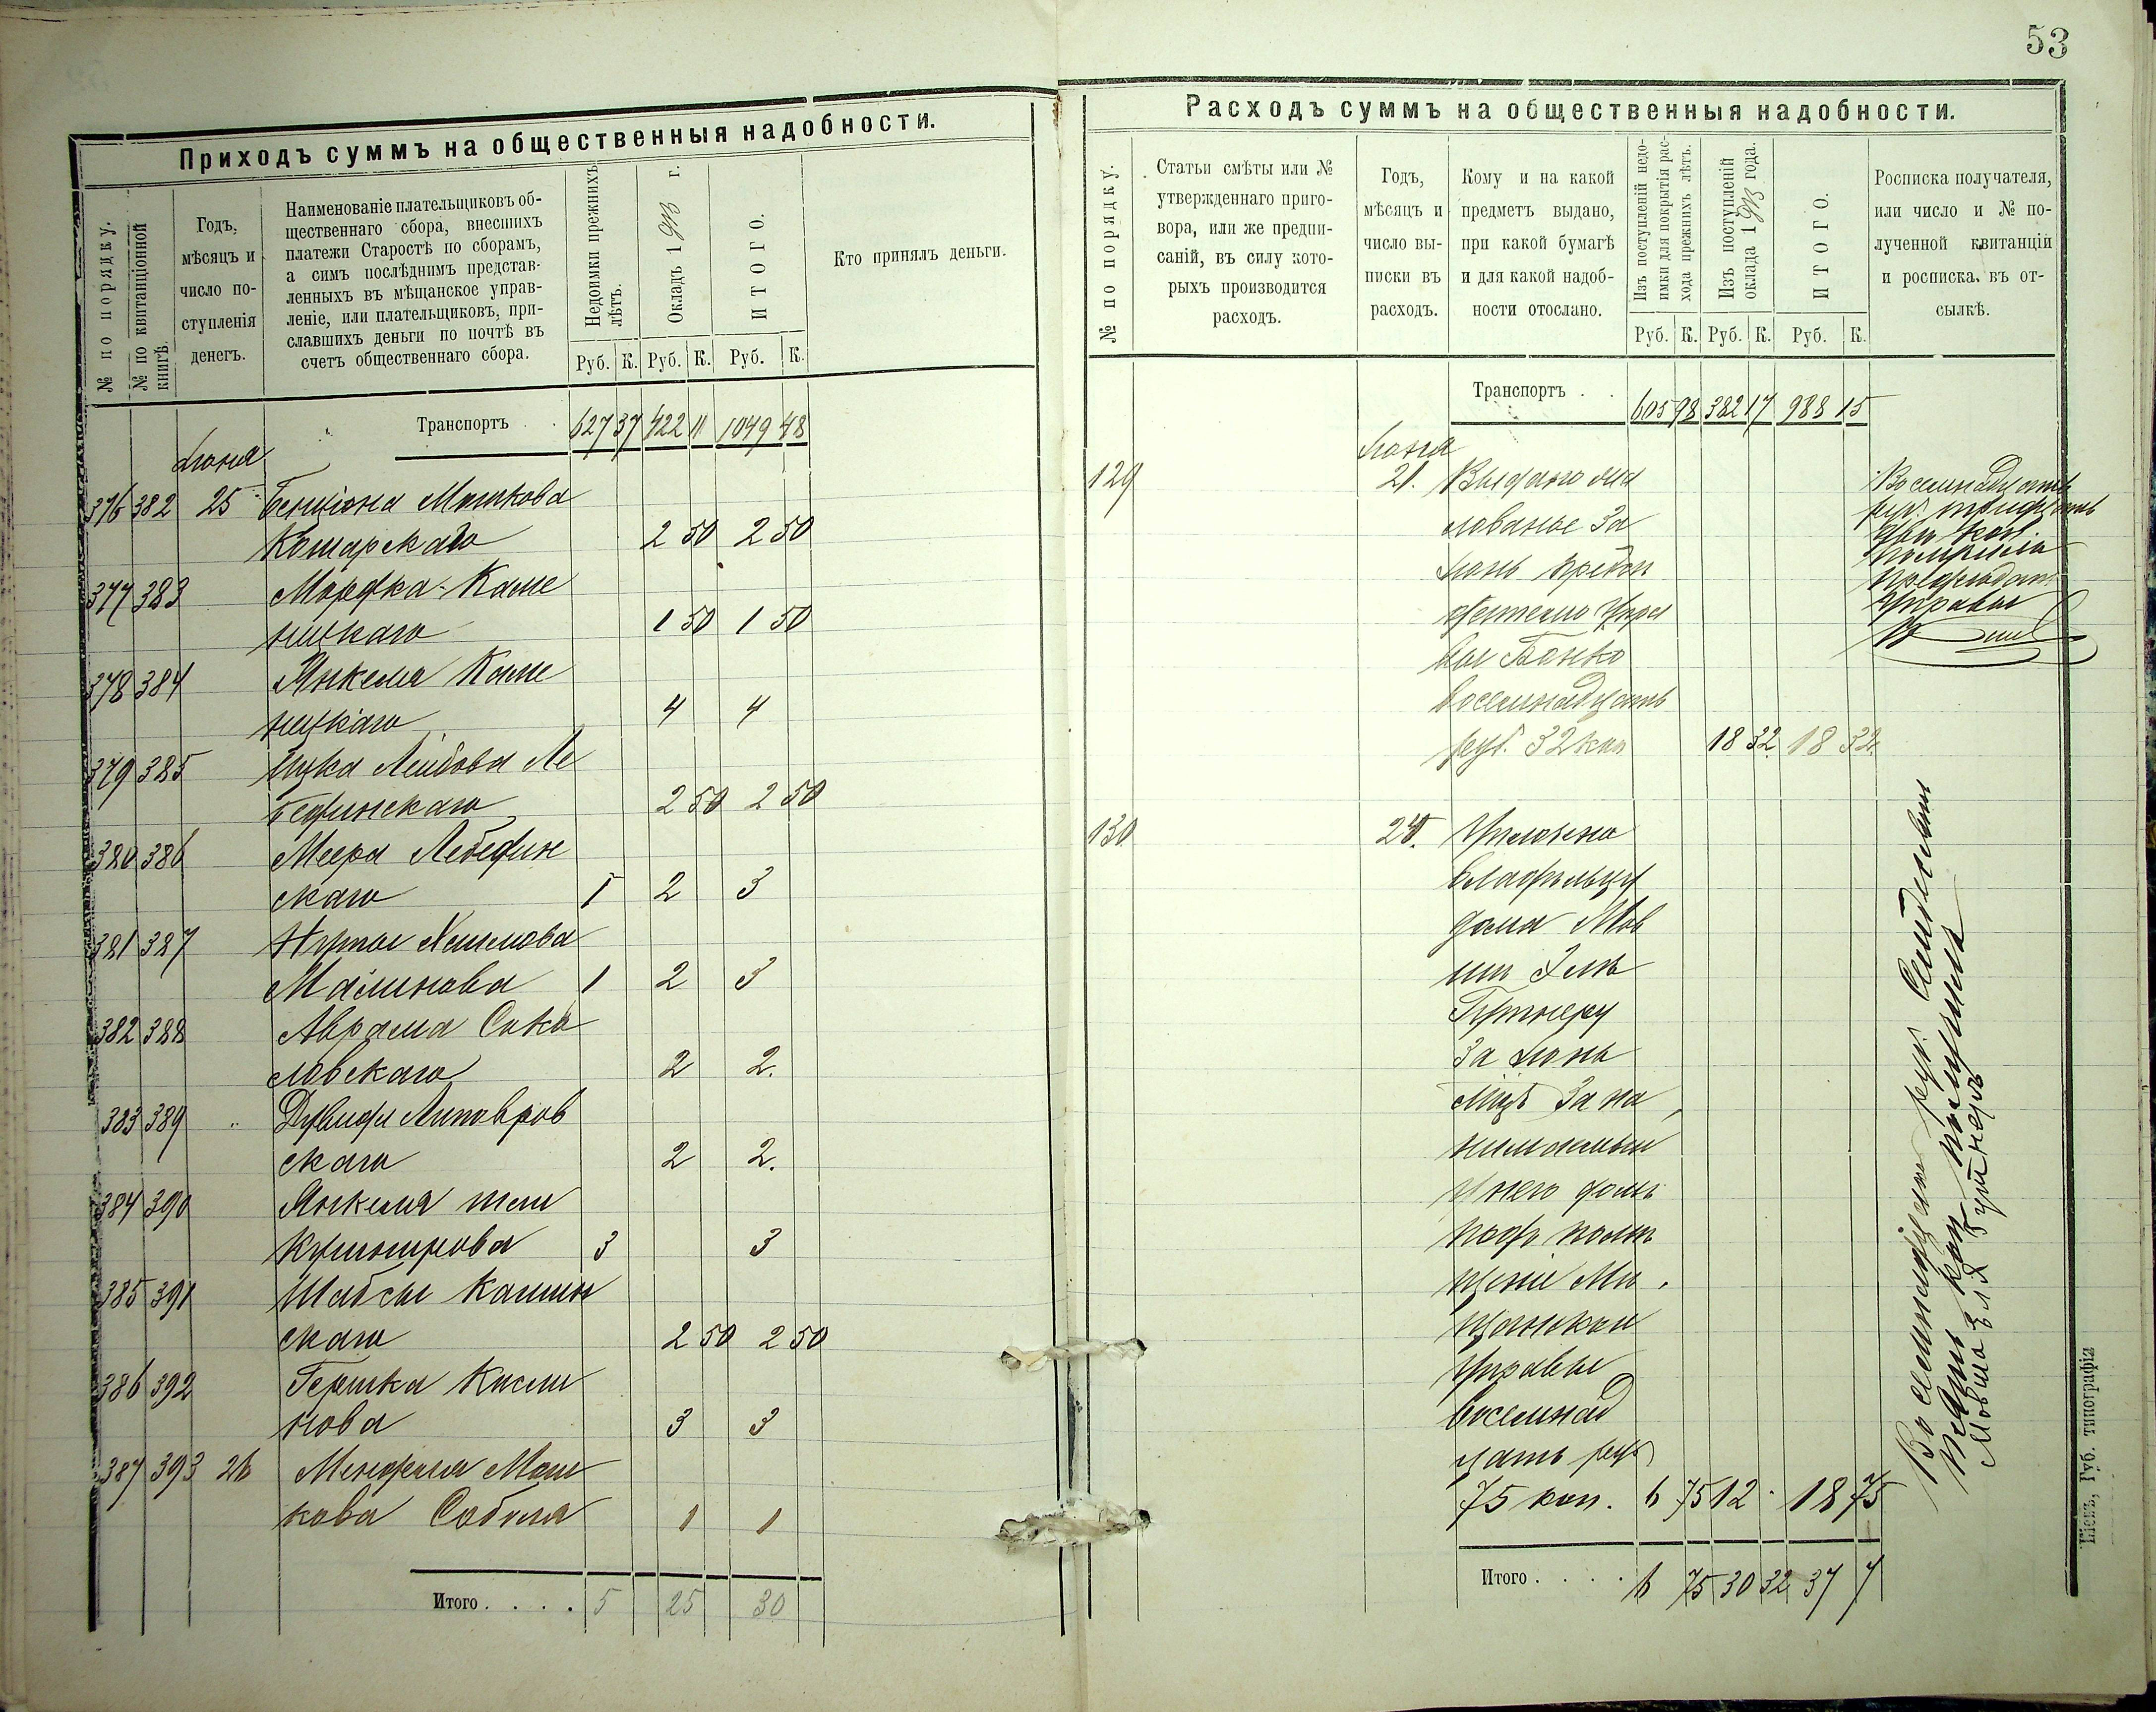 53
Приходъ суммъ на общественныя надобности.
№ по порядку.
№ по квитанціонной
книгѣ.
Годъ,
мѣсяцъ и
число по-
ступленія
денегъ.
Наименованіе плательщиковъ об-
щественнаго сбора, внесшихъ
платежи Старостѣ по сборамъ,
а симъ послѣднимъ представ-
ленныхъ въ мѣщанское управ-
леніе, или плательщиковъ, при-
славшихъ деньги по почтѣ въ
счетъ общественнаго сбора.
Недоимки прежнихъ
лѣтъ.
Окладъ 1913 г.
ИТОГО.
Кто принялъ деньги.
Руб. К. Руб. К. Руб. К.
Транспортъ . . 627 37 422 11 1049 48
Іюня
376 382 25 Бенціона Мошкова
Комарскаго 2 50 2 50
377 383 Мордка Каме
ницкаго 1 50 1 50
378 384 Янкеля Каме
ницкаго 4 4
379 385 Ицка Лейбова Ле
бединскаго 2 50 2 50
380 386 Меера Лебедин
скаго 1 2 3
381 387 Нухима
Малинова 1 2 3
382 388 Аврама Соко
ловскаго 2 2.
383 389 Липовров
скаго 2 2.
384 390 Янкеля
Кушнирова 3 3
385 391 Шабсы Камин
скаго 2 50 2 50
386 392 Гершка
нова 3 3
387 393 26 Менделя Мош
кова Соболя 1 1
Итого . . . . 5 25 30
Расходъ суммъ на общественныя надобности.
№ по порядку.
Статьи смѣты или №
утвержденнаго приго-
вора, или же предпи-
саній, въ силу кото-
рыхъ производится
расходъ.
Годъ,
мѣсяцъ и
число вы-
писки въ
расходъ.
Кому и на какой
предметъ выдано,
при какой бумагѣ
и для какой надоб-
ности отослано.
Изъ поступленій недо-
имки для покрытія рас-
хода прежнихъ лѣтъ.
Изъ поступленій
оклада 1913 года.
ИТОГО.
Росписка получателя,
или число и № по-
лученной квитанціи
и росписка въ от-
сылкѣ.
Руб. К. Руб. К. Руб. К.
Транспортъ . . 605 98 382 17 988 15
Іюня
129 21. Выдано жа
лованье за
Іюнь предсѣ
дателю Упра
вы Бонко
восемнадцать
руб. 32 коп. 18 32 18 32
Восемнадцать
руб. тридцать
два коп
получилъ
Предсѣдат.
Управы
130 24. Уплочено
владѣльцу
дома Мов
ши Эля
Гутнеру
за Іюнь
мѣц за на
нимаемый
у него домъ
подъ помѣ
щеніе Мѣ
щанской
Управы
восемнад
цать руб
75 коп. 6 75 12 18 75
Восемнадцать руб. Семдесять
пять коп получилъ
Мовша Эля Гутнеръ
Итого . . . . 6 75 30 32 37 7
Кіевъ, Губ. типографія